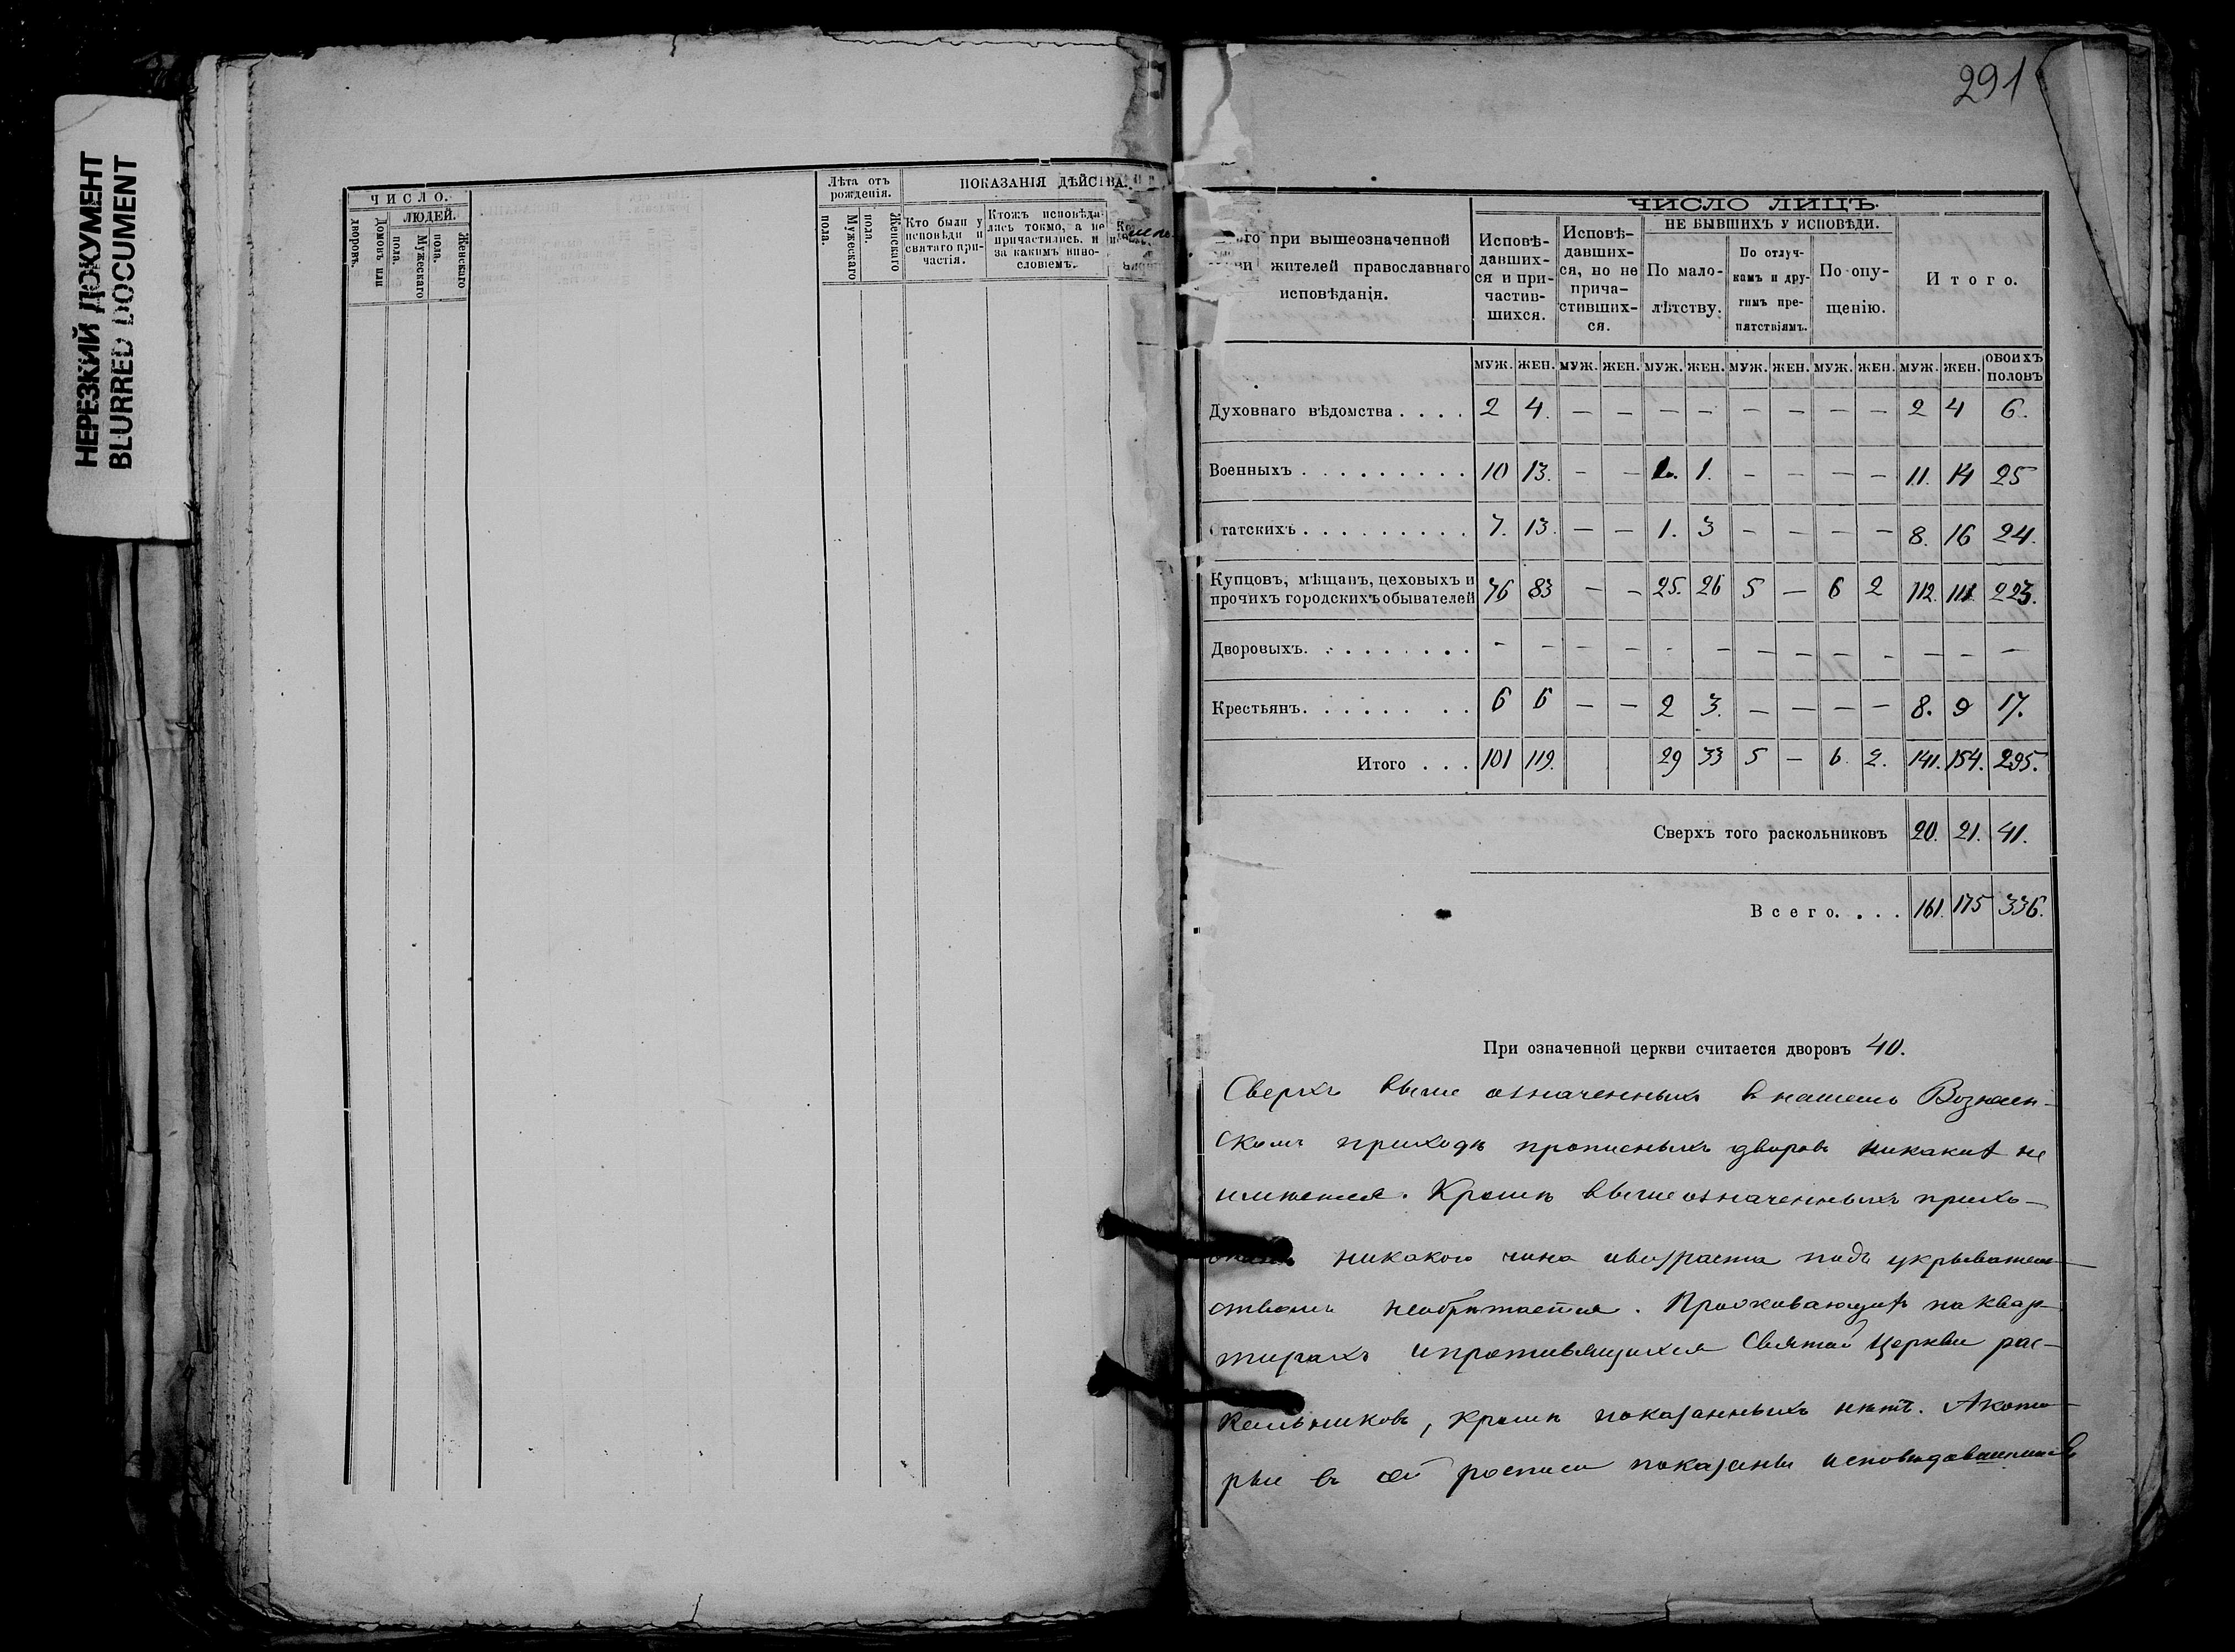 НЕРЕЗКИЙ ДОКУМЕНТ
BLURRED DOCUMENT
ЧИСЛО.
ЛЮДЕЙ.
Домовъ или дворовъ.
Мужескаго пола.
Женскаго пола.
Лѣта отъ рожденія.
Мужескаго пола.
Женскаго пола.
ПОКАЗАНІЯ ДѢЙСТВА.
Кто были у исповѣди и святаго причастія.
Ктожъ исповѣдались токмо, а не причастились, и за какимъ винословіемъ.
291
ЧИСЛО ЛИЦЪ.
при вышеозначенной
жителей православнаго
исповѣданія.
Исповѣдавшихся и причастившихся.
Исповѣдавшихся, но не причастившихся.
НЕ БЫВШИХЪ У ИСПОВѢДИ.
По малолѣтству.
По отлучкамъ и другимъ препятствіямъ.
По опущенію.
Итого.
МУЖ. ЖЕН. МУЖ. ЖЕН. МУЖ. ЖЕН. МУЖ. ЖЕН. МУЖ. ЖЕН. МУЖ. ЖЕН. ОБОИХЪ ПОЛОВЪ
Духовнаго вѣдомства . . . . 2 4. — — — — — — — — 2 4 6.
Военныхъ . . . . . . . . . 10 13. — — 1. 1. — — — — 11. 14 25
Статскихъ . . . . . . . . . 7. 13. — — 1. 3 — — — — 8. 16 24.
Купцовъ, мѣщанъ, цеховыхъ и
прочихъ городскихъ обывателей 76 83 — — 25. 26 5 — 6 2 112. 111. 223.
Дворовыхъ. . . . . . . . . — — — — — — — — — — — — —
Крестьянъ. . . . . . . . 6 6 — — 2 3. — — — — 8. 9 17.
Итого . . . 101 119. 29 33 5 — 6. 2. 141. 154. 295.
Сверхъ того раскольниковъ 20. 21. 41.
Всего. . . . 161. 175 336.
При означенной церкви считается дворовъ 40.
Сверхъ выше означенныхъ в нашемъ Вознесен-
скомъ приходѣ прописныхъ дворовъ никакихъ не
имѣется. Кромѣ вышеозначенныхъ прихо-
никакого чина ивозраста подъ укрыватель-
ствомъ необрѣтается. Проживающихъ наквар-
тирахъ ипротивящихся Святой Церкви рас-
кольниковъ, кромѣ показанныхъ нѣтъ. Акото-
рые въ сей росписи показаны исповѣдавшимися